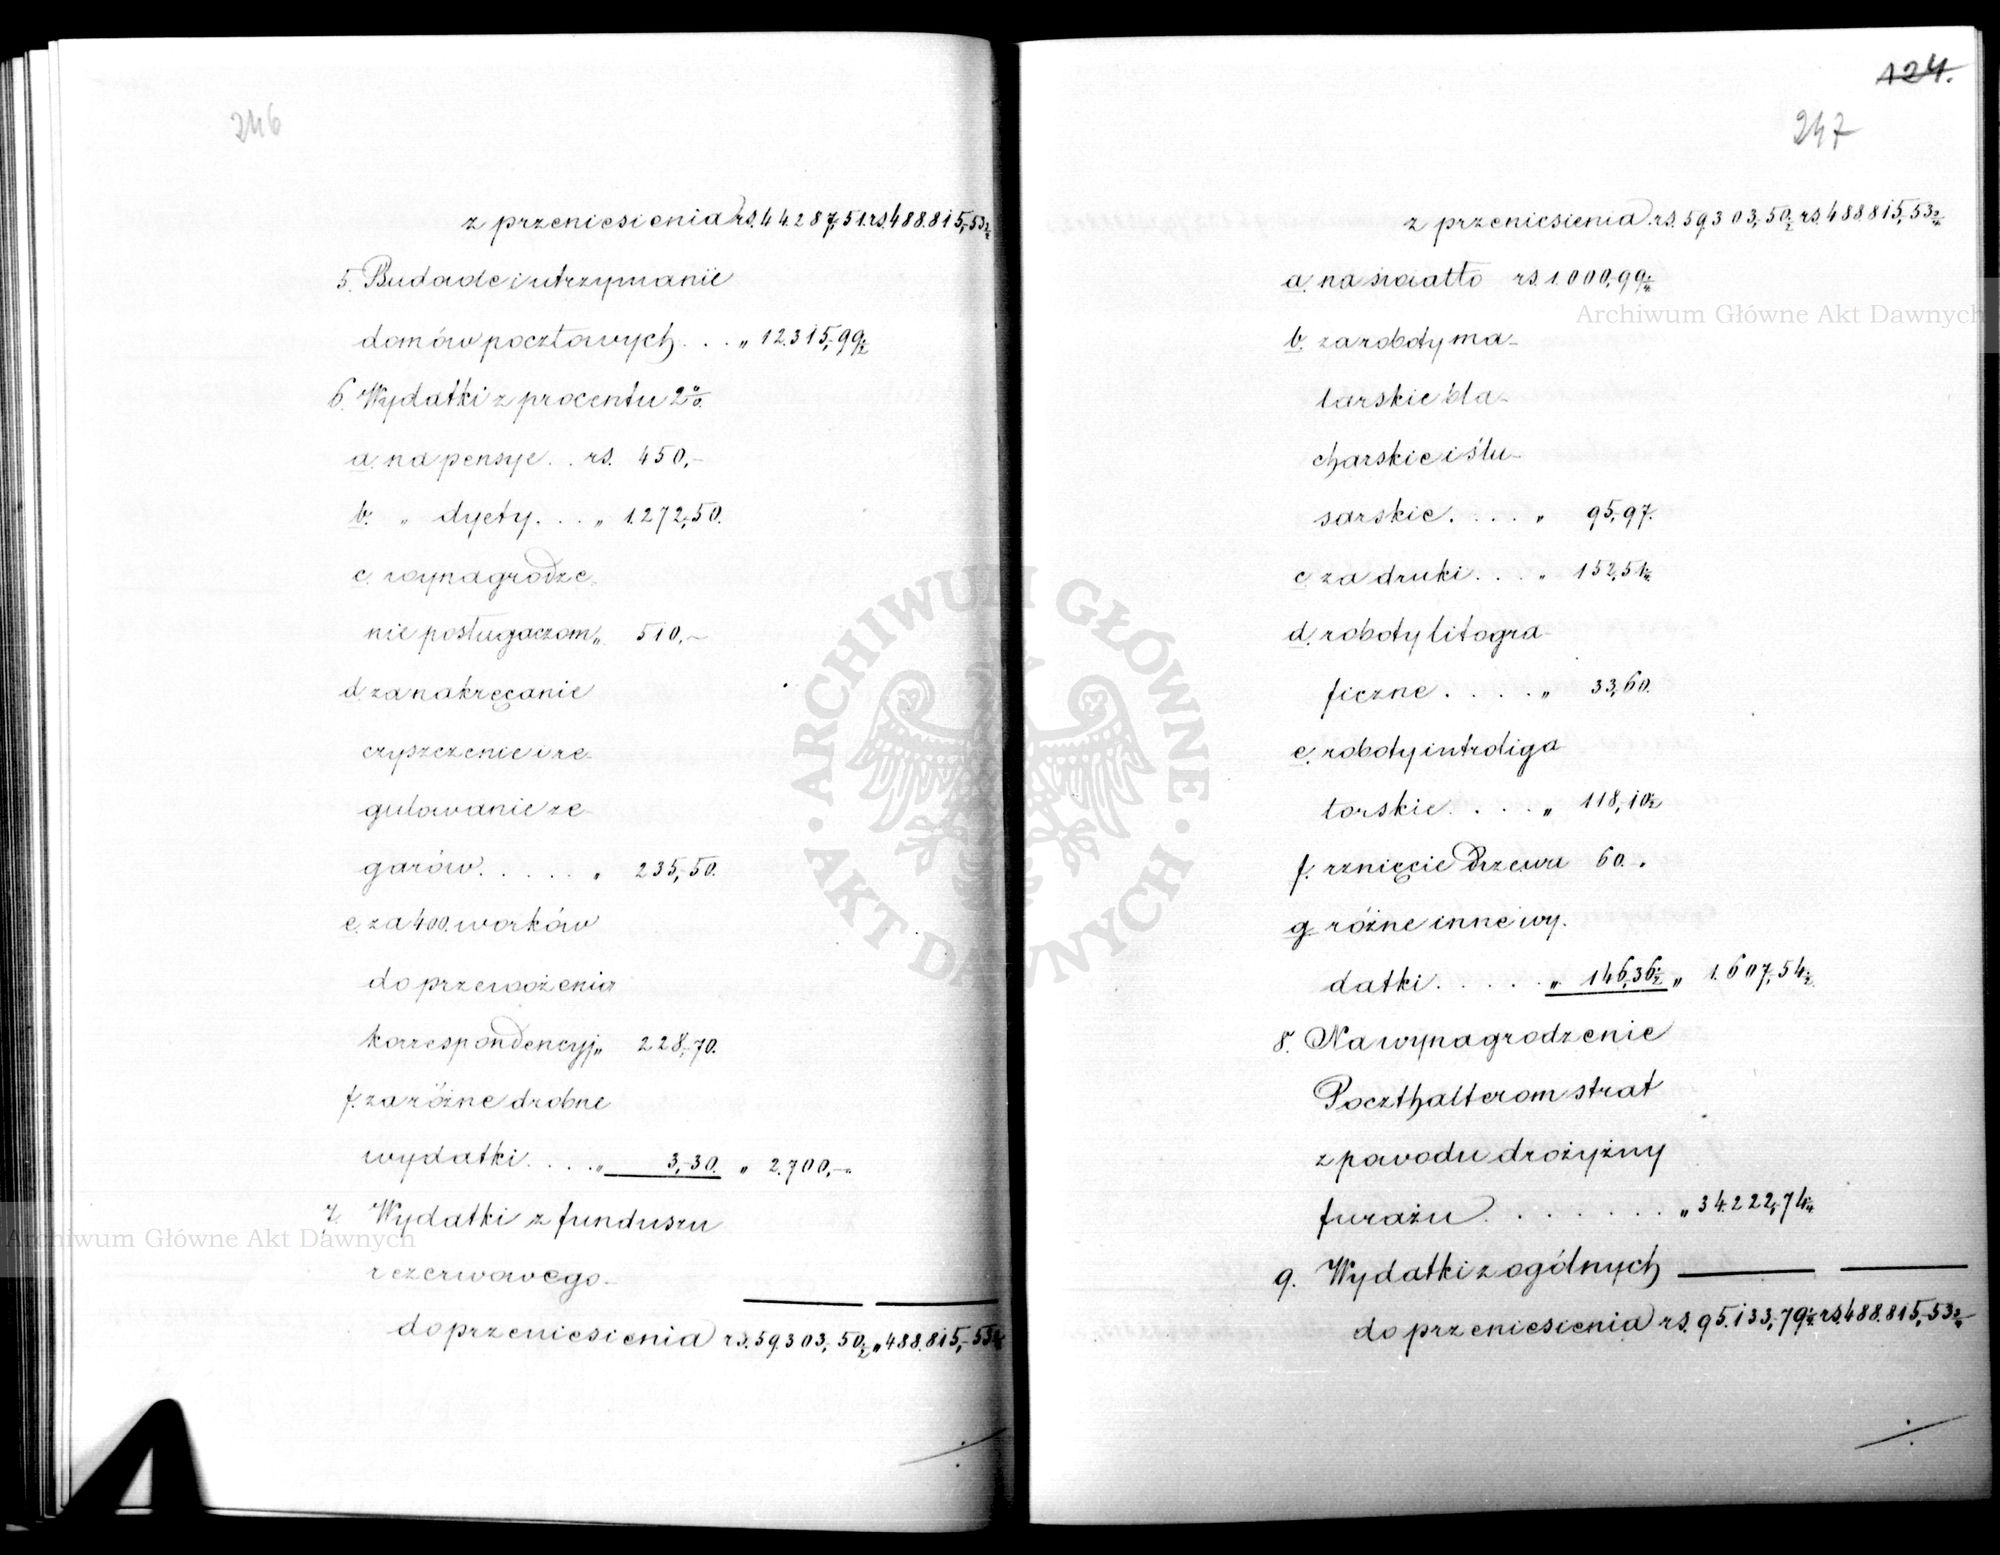 246
z przeniesienia rs. 44.287,51. rs. 488.815,53 3/4
5. Budowle i utrzymanie
domów pocztowych . . . „ 12.315,99 1/2
6. Wydatki z procentu 2%
a. na pensye . . rs. 450,-
b. „ dyety . . . „ 1.272,50.
c. wynagrodze-
nie posługaczom „ 510,-
d. za nakręcanie
czyszczenie i re-
gulowanie ze-
garów . . . . . „ 235,50.
e. za 400. worków
do przewożenia
korrespondencyj „ 228,70.
f. za różne drobne
wydatki . . . . „ 3,30. „ 2.700,-
7. Wydatki z funduszu
rezerwowego-
do przeniesienia rs. 59.303,50 1/2 „ 488.815,53 3/4
124.
247
z przeniesienia rs. 59.303,50 1/2 rs. 488.815,53 3/4
a. na światło rs. 1.000,99 1/4
b. za roboty ma-
larskie bla-
charskie i ślu-
sarskie . . . . „ 95,97.
c. za druki . . . „ 152,51 1/4
d. roboty litogra-
ficzne . . . . „ 33,60.
e. roboty introliga
torskie . . . . „ 118,10 1/2
f. rznięcie drzewa 60.
g. różne inne wy-
datki . . . . . „ 146,36 1/2 „ 1.607,54 1/2
8. Na wynagrodzenie
Poczthalterom strat
z powodu drożyzny
furażu . . . . . . . „ 34.222,74 1/4
9. Wydatki z ogólnych
do przeniesienia rs. 95.133,79 1/4 rs. 488.815,53 3/4
Archiwum Główne Akt Dawnych
Archiwum Główne Akt Dawnych
ARCHIWUM GŁÓWNE AKT DAWNYCH